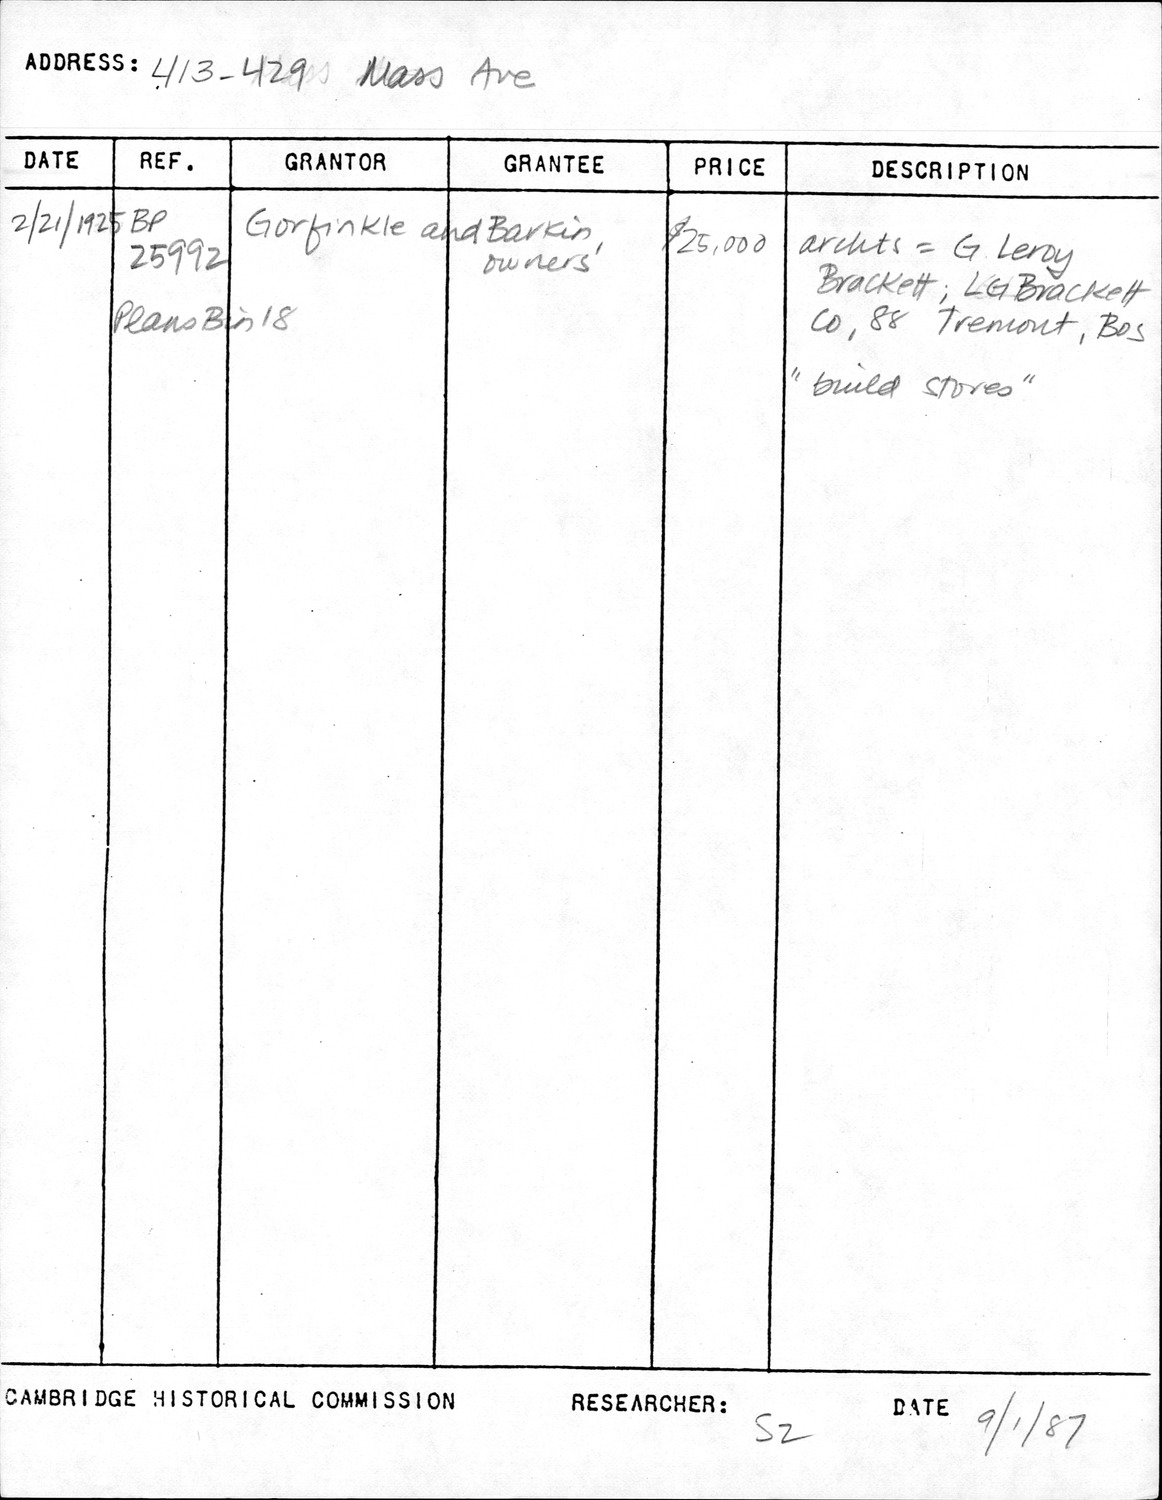 ADDRESS: 413-429 Mass Ave
DATE REF. GRANTOR GRANTEE PRICE DESCRIPTION
2/21/1925 BP Gorfinkle and Barkin, $25,000 archts = G. Leroy
25992 owners Brackett; LG Brackett
Plans Bin 18 Co, 88 Tremont, Bos
"build stores"
CAMBRIDGE HISTORICAL COMMISSION RESEARCHER: SZ DATE 9/1/87